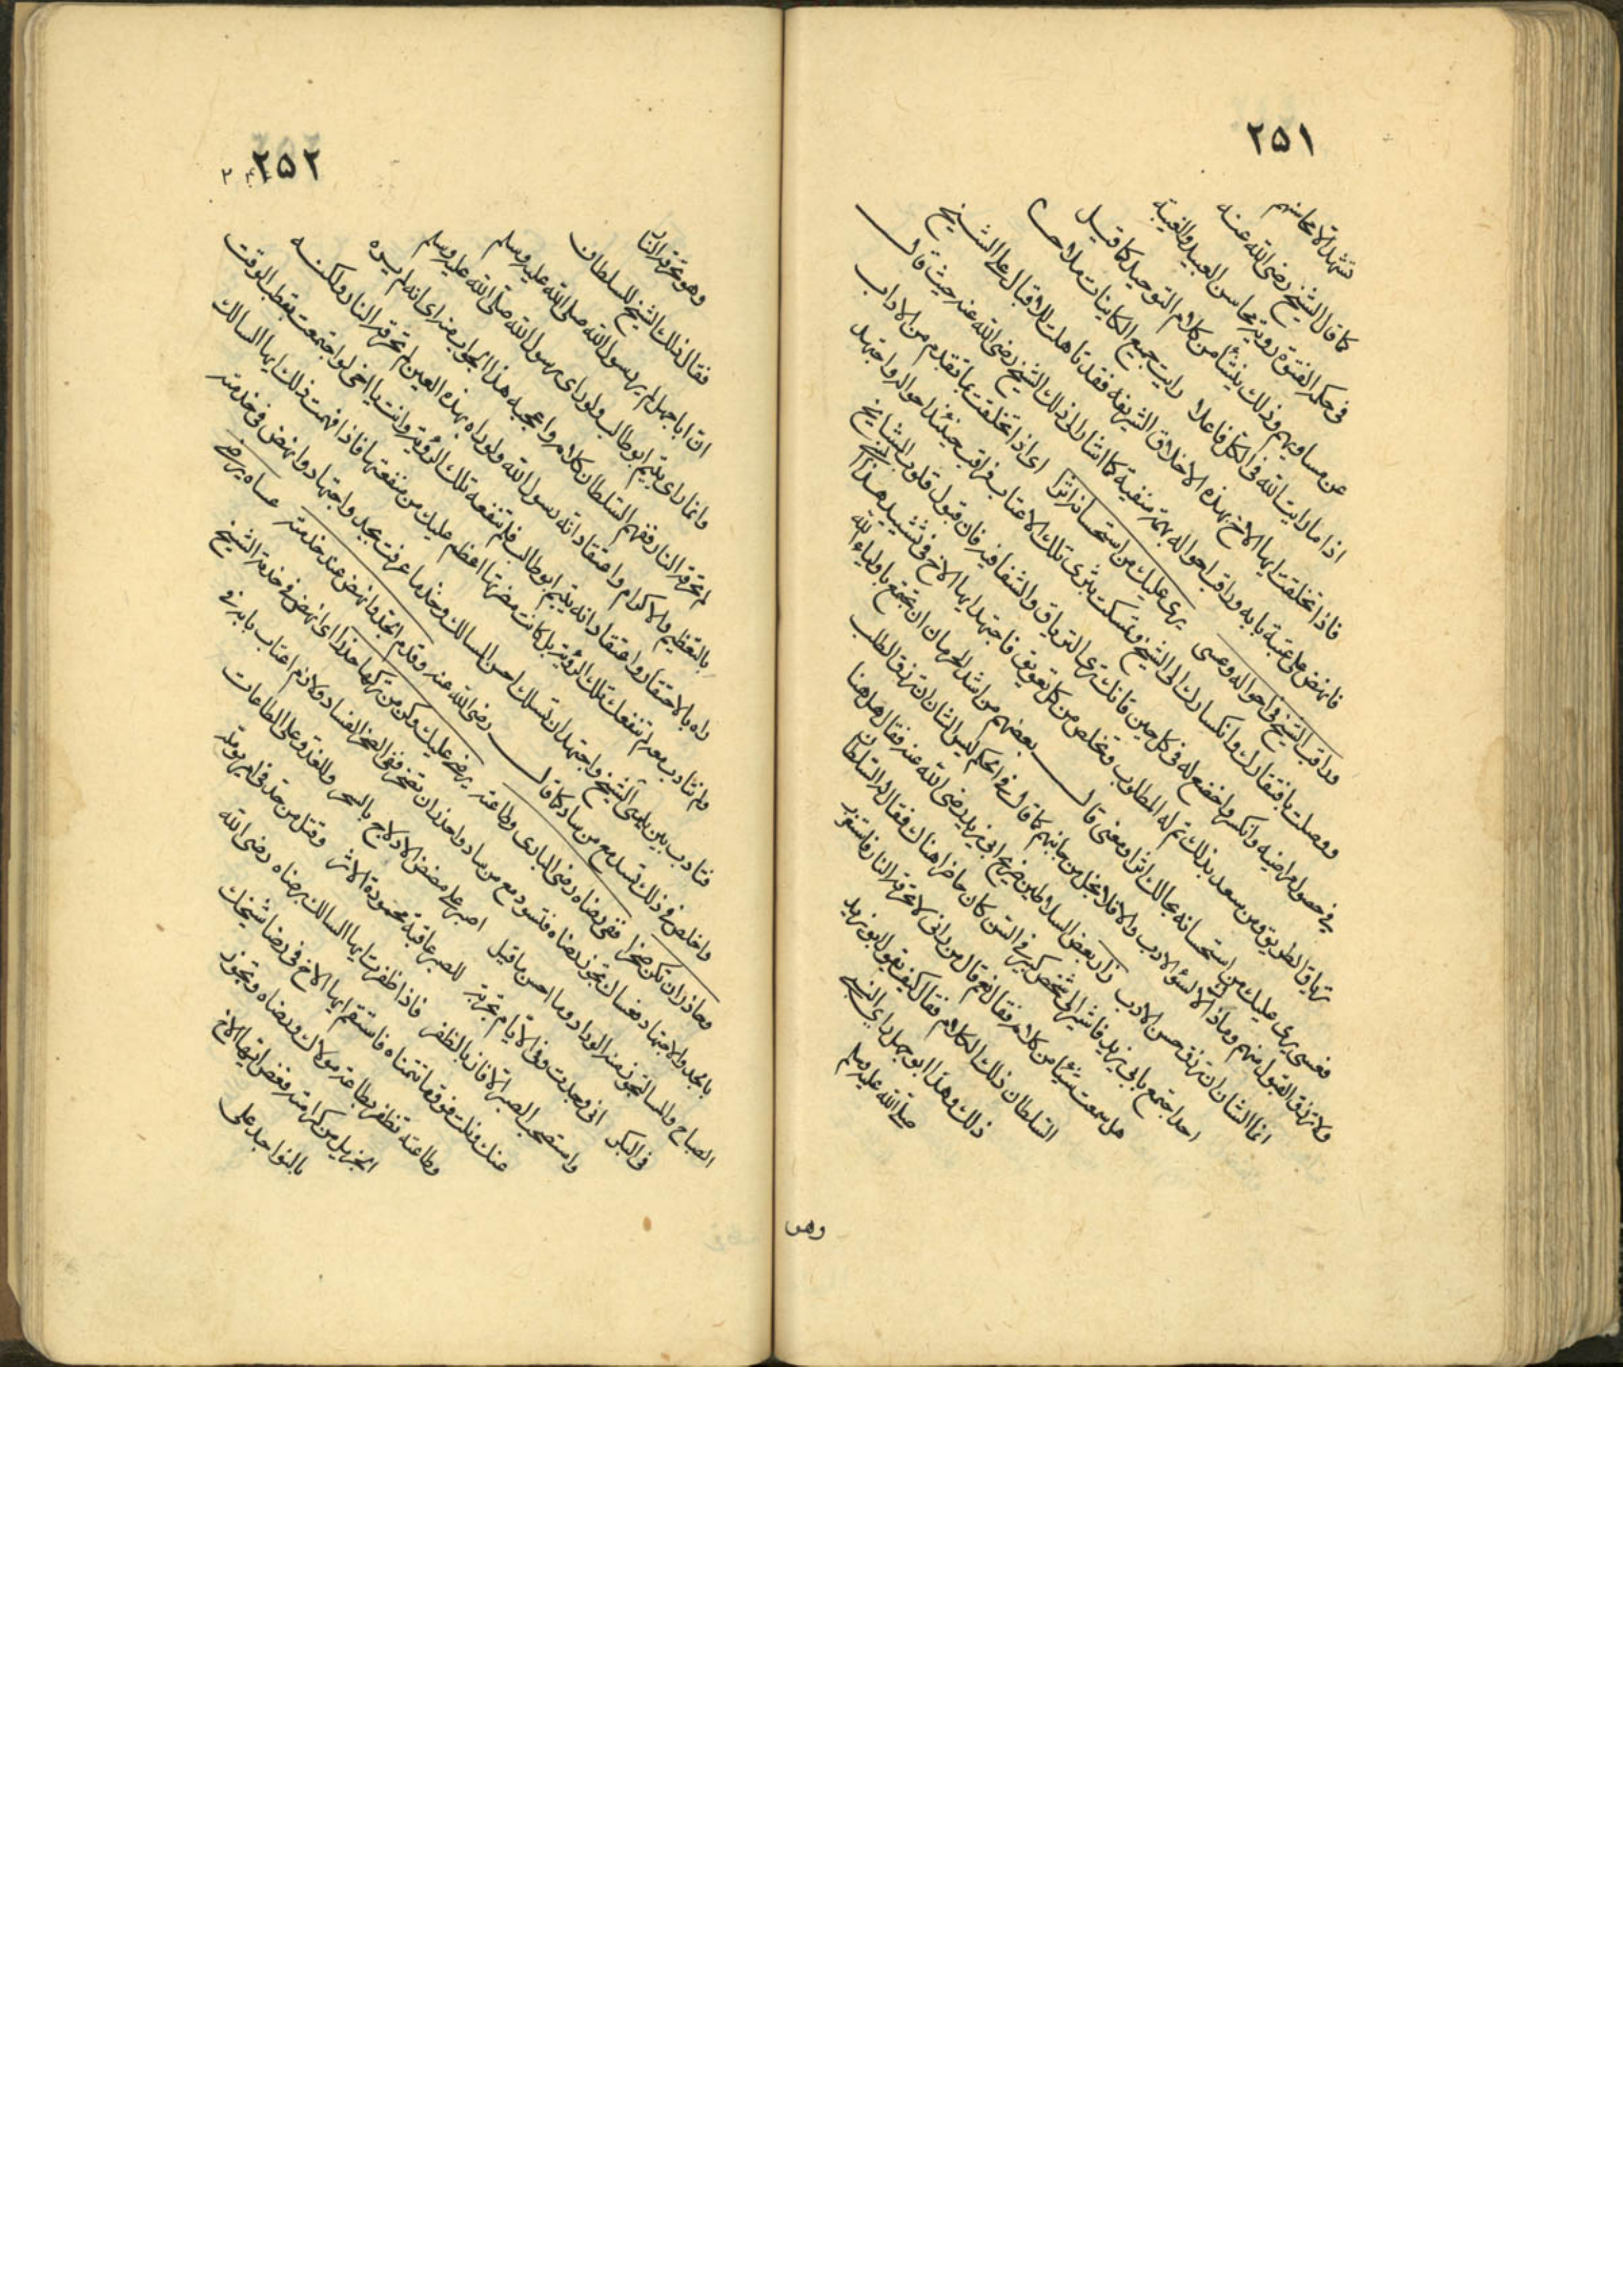 ٢٥١
تشهد الا محاسنهم
كما قال الشيخ رضى الله عنه
فى حكم الفتوة روية محاسن العبيد والغيبة
عن مساويهم وذلك ينشأ من كلام التوحيد كما قيل
اذا ما رايت الله فى الكل فاعلا رايت جميع الكاينات ملاحا
فاذا تخلقت ايها الاخ بهذه الاخلاق الشريفة فقد تاهلت للاقبال على الشيخ
فانهض على عتبة بابه وراقب احواله بهمة منيفة كما اشار الى ذلك الشيخ رضى الله عنه حيث قال
وراقب الشيخ فى احواله وعسى يرى عليك من استحسانه اثرا اى اذا تخلقت بما تقدم من الاداب
ووصلت بافتقارك وانكسارك الى الشيخ وتمسكت بثرى تلك الاعتاب فراقب حينئذ احواله واجتهد
فى حصول مراضيه وانكسر واخضع له فى كل حين فانك ترى الترياق والشفا فيه فان قبول قلوب المشايخ
ترياق الطريق ومن سعد بذلك تم له المطلوب وتخلص من كل تعويق فاجتهد ايها الاخ فى تشييد هذا
فعسى يرى عليك من استحسانه بحالك اثرا ومعنى قال بعضهم من اشد الحرمان ان تجتمع باولياء الله
ولا ترزق القبول منهم وما ذلك الا لسؤ الادب والا فلا بخل من جانبهم كما قال فى الحكم ليس الشان ان ترزق الطلب
انما الشان ان ترزق حسن الادب زار بعض السلاطين ضريح ابى يزيد رضى الله عنه فقال هل هنا
احد اجتمع بابى يزيد فاشير الى شخص كبير فى السن كان حاضرا هناك فقال له السلطان
هل سمعت شيئا من كلامه فقال نعم قال من رانى لا تحرقه النار فاستغرب
السلطان ذلك الكلام فقال كيف يقول ابو يزيد
ذلك وهذا ابو جهل راى النبى
صلى الله عليه وسلم
وهو
٢٥٢
وهو تحرقه النار
فقال ذلك الشيخ للسلطان
ان ابا جهل لم ير رسول الله صلى الله عليه وسلم
وانما راى يتيم ابو طالب ولو راى رسول الله صلى الله عليه وسلم
لم تحرقه النار ففهم السلطان كلامه واعجبه هذا الجواب منه اى انه لم يره
بالتعظيم والاكرام واعتقاد انه رسول الله ولو راه بهذه العين لم تحرقه النار ولكنه
راه بالاحتقار واعتقاد انه يتيم ابو طالب فلم تنفعه تلك الرؤية وانت يا اخى لو اجتمعت بقطب الوقت
ولم تتادب معه لم تنفعك تلك الرؤية بل كانت مضرتها اعظم عليك من منفعتها فاذا فهمت ذلك ايها السالك
فتادب بين يدى الشيخ واجتهد ان تسلك احسن المسالك وخذ ما عرفت بجد واجتهاد وانهض فى خدمته
واخلص فى ذلك تسد مع من ساد كما قال رضى الله عنه وقدم الجد وانهض عند خدمته عساه يرضى
وحاذر ان تكن ضجرا ففى رضاه رضى البارى وطاعته يرضى عليك وكن من تركها حذرا اى انهض فى خدمة الشيخ
بالجد والاجتهاد فعساك تحوز رضاه فتسود مع من ساد واحذر ان تضجر ففى الضجر الفساد ولازم اعتاب بابه فى
الصباح والمسا لتحوز منه الوداد وما احسن ما قيل اصبر على مضض الادلاج بالسحر وللغدو على الطاعات
فى البكر انى وجدت وفى الايام تجربة للصبر عاقبة محمودة الاثر وقل من جد فى امر يؤمله
واستصحب الصبر الا فاز بالظفر فاذا ظفرت ايها السالك برضاه رضى الله
عنك ونلت فوق ما تتمناه فاستقم ايها الاخ فى رضا شيخك
وطاعته تظفر بطاعة مولاك ورضاه وتحوز
الجزيل من كرامته فعض ايها الاخ
بالنواجد على